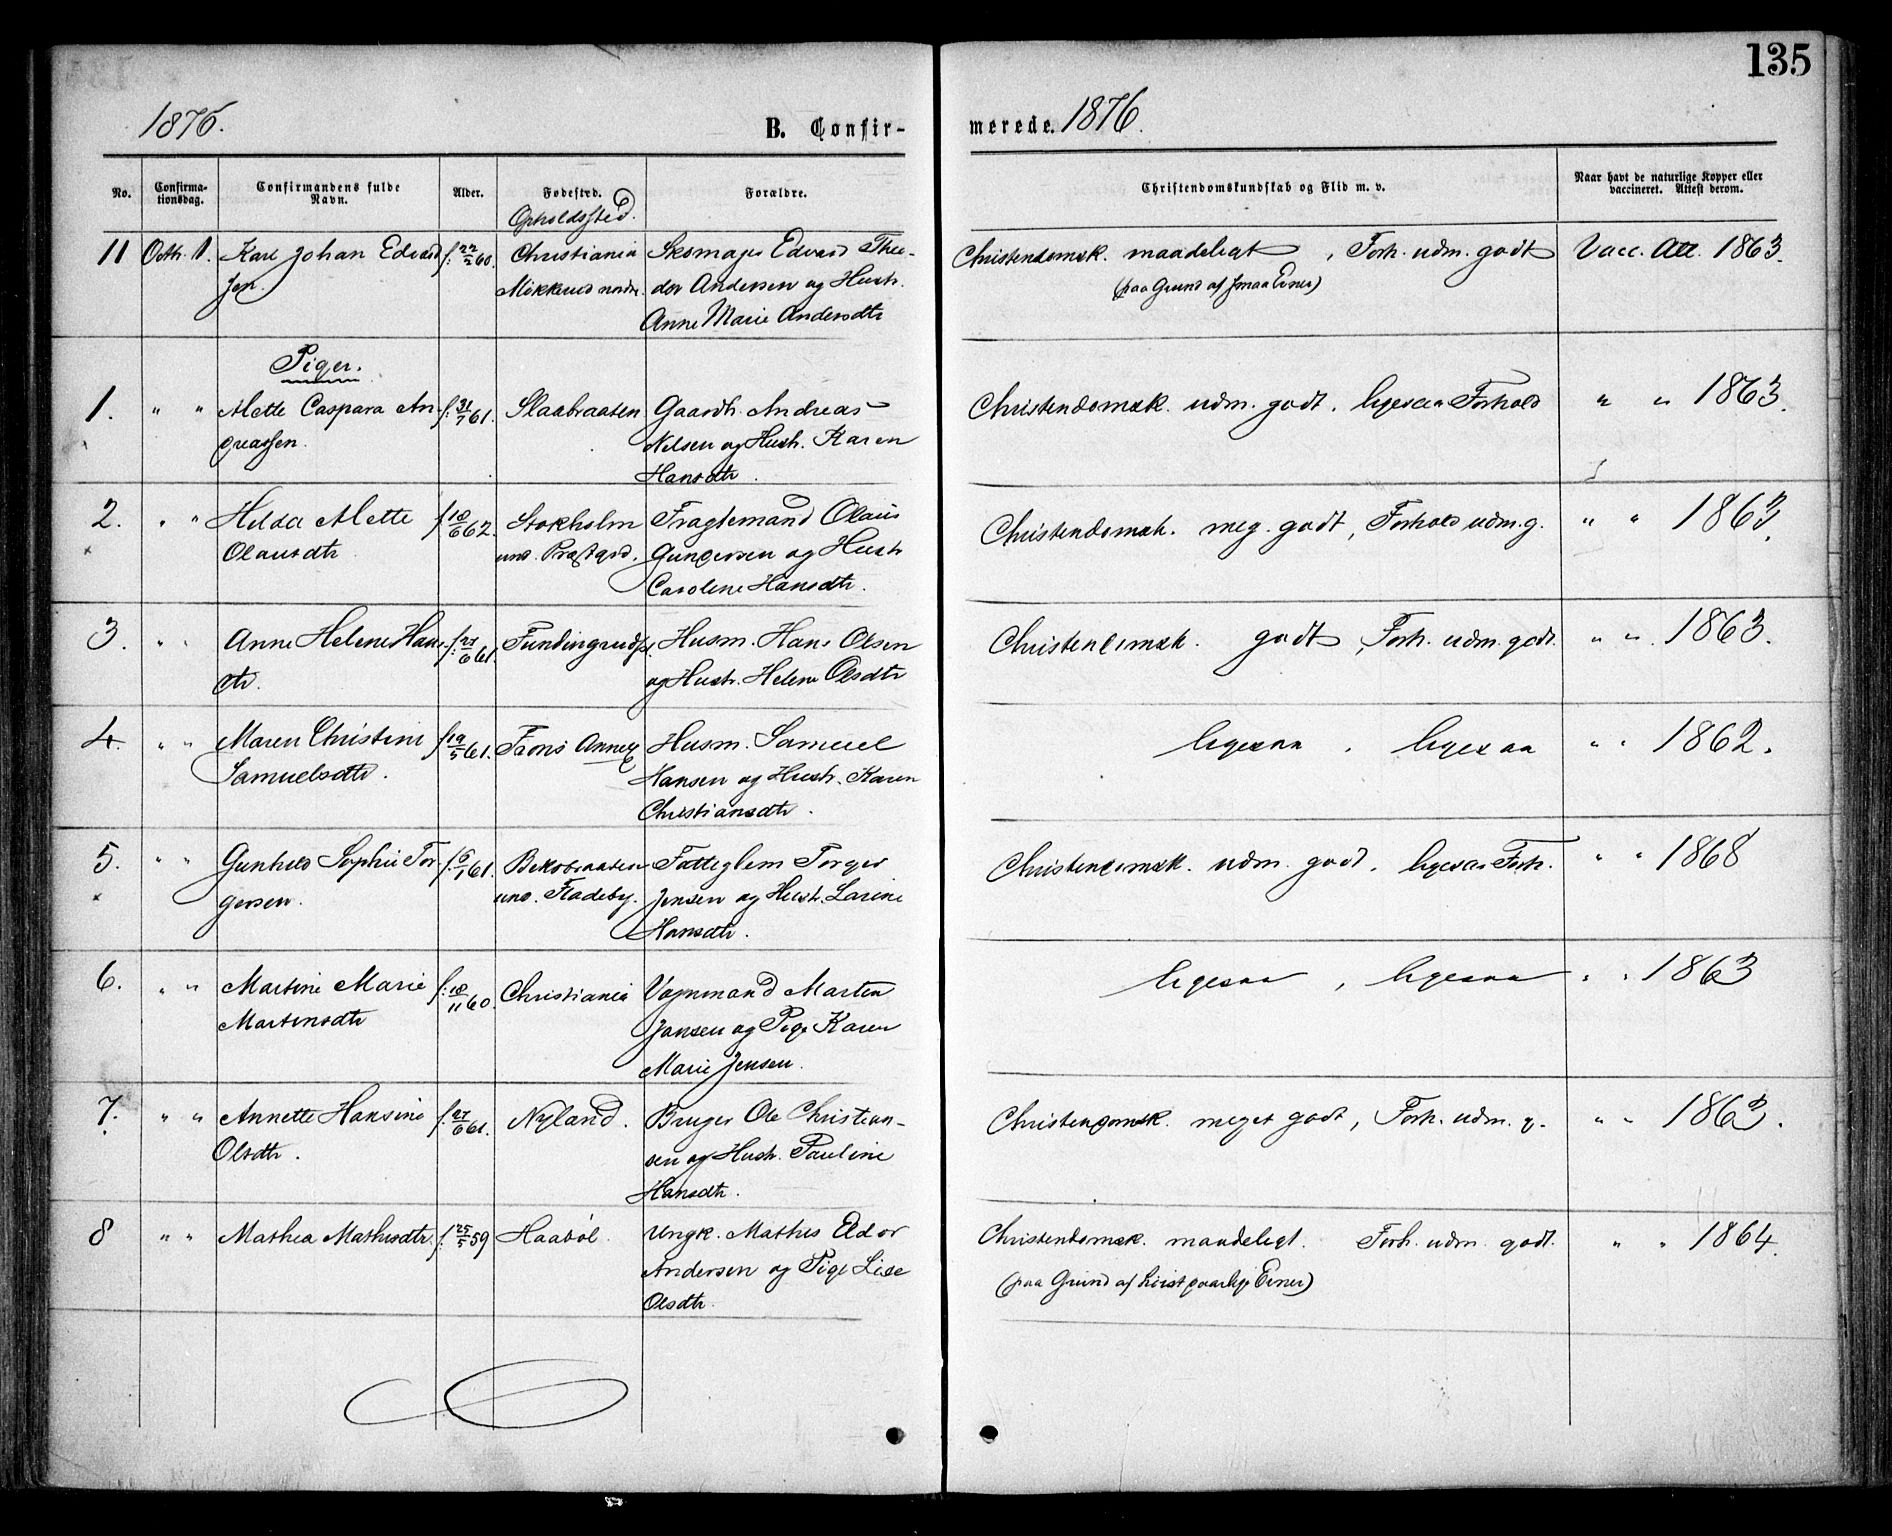 135
1876.
B. Confir-
merede. 1876.
No.
Confirma-
tionsdag.
Confirmandens fulde
Navn.
Alder.
Fødested.
Opholdssted.
Forældre.
Christendomskundskab og Flid m. v.
Naar havt de naturlige Kopper eller
vaccineret. Attest derom.
11 Octb. 1. Karl Johan Edvard f. 22/2 60. Christiania Skomager Edvard Theo- Christendomsk. maadeligt, Forh. udm. godt Vacc. Att. 1863.
Mikkerud nordre. dor Andersen og Hustr. (paa Grund af smaa Evner)
Anne Marie Andersdtr
Piger.
1. " " Mette Caspara An- f. 31/7 61. Slaabraaten Gaardb. Andreas Christendomsk. udm. godt. ligesaa Forhold " " 1863.
dreassen. Nilsen og Hustr. Karen
Hansdtr.
2. " " Helda Mette f. 18/6 62. Stokholm Fragtemand Olaus Christendomsk. meg. godt, Forhold udm. g. " " 1863.
Olausdtr. und. Præstgrd. Gundersen og Hustr
Caroline Hansdtr.
3. " " Anne Helene Hans- f. 27/6 61. Husm. Hans Olsen Christendomsk. godt, Forh. udm. godt. " " 1863.
dtr. og Hustr. Helene Olsdtr
4. " " Maren Christine f. 19/5 61. Annex Husm. Samuel ligesaa, ligesaa " " 1862.
Samuelsdtr. Hansen og Hustr. Karen
Christiansdtr.
5. " " Gunhild Sophie Tor- f. 6/1 61. Fattiglem Torger Christendomsk. udm. godt. ligesaa Forh. " " 1868
gersen. und. Fladeby. Jensen og Hustr. Larine
Hansdtr.
6. " " Martine Marie f. 18/11 60. Christiania Vognmand Marten ligesaa, ligesaa " " 1863
Martinsdtr Jansen og Pige Karen
Marie Jensen.
7. " " Annette Hansine f. 27/6 61. Nyland. Bruger Ole Christian- Christendomsk. meget godt, Forh. udm. g. " " 1863.
Olsdtr. sen og Hustr. Pauline
Hansdtr.
8 " " Mathea Mathisdtr. f. 25/5 59 Haabøl. Ungk. Mathis Edor Christendomsk. maadeligt. Forh. udm. godt. " " 1864.
Andersen og Pige Lise (paa Grund af Evner)
Olsdtr.